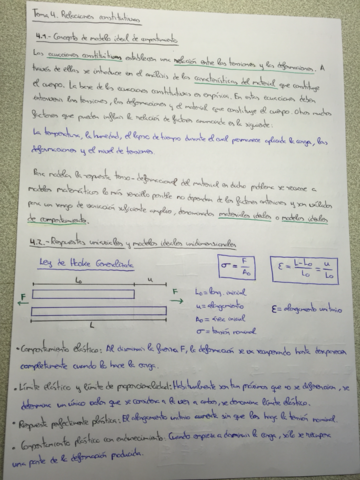 Tema 4. Relaciones constitutivas
4.1.- Concepto de modelo ideal de comportamiento
Las ecuaciones constitutivas establecen una relación entre las tensiones y las deformaciones. A
través de ellas se introduce en el análisis de las características del material que constituye
el cuerpo. La base de las ecuaciones constitutivas es empírica. En estas ecuaciones deben
las tensiones, las deformaciones y el material que constituye el cuerpo. Otros muchos
factores que pueden influir la relación de factores enunciada es la siguiente:
La temperatura, la humedad, el lapso de tiempo durante el cual permanece aplicada la carga, las
deformaciones y el nivel de tensiones.
Para modelar la respuesta tenso-deformacional del material en dicho problema se recurre a
modelos matemáticos lo más sencillos posible no dependan de los factores anteriores y son válidos
para un rango de variación suficiente amplio, denominados materiales ideales o modelos ideales
de comportamiento.
4.2.- Respuestas uniaxiales y modelos ideales unidimensionales
Ley de Hooke Generalizada
σ = F/A₀
ε = L-L₀/L₀ = u/L₀
L₀ u
F F
L
L₀ = long. inicial
u = alargamiento
A₀ = área inicial
σ = tensión nominal
ε = alargamiento unitario
• Comportamiento elástico: Al disminuir la fuerza F, la deformación se va recuperando hasta desaparecer
completamente cuando lo hace la carga.
• Límite elástico y límite de proporcionalidad: Habitualmente son tan próximos que no se diferencian, se
determina un único valor que se considera a la vez a ambos, se denomina límite elástico.
• Respuesta perfectamente plástica: El alargamiento unitario aumenta sin que lo haga la tensión nominal.
• Comportamiento plástico con endurecimiento: Cuando empieza a disminuir la carga, sólo se recupera
una parte de la deformación producida.